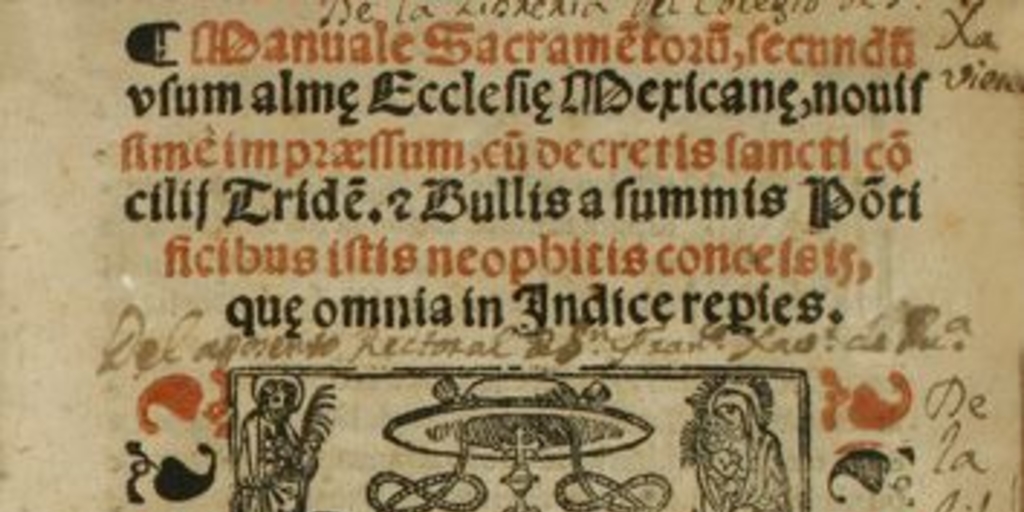 De la Libreria del Colegio de S.
Xa
vier
¶ Manuale Sacramẽtorũ, ſecundũ
vſum almę Eccleſię Mexicanę, nouiſ
ſimè impræſſum, cũ decretis ſancti cõ
cilij Tridẽ. ⁊ Bullis a ſummis Põti
ficibus iſtis neophitis conceſsis,
quę omnia in Indice repies.
Del aposento Rectoral de Sn. Franco. Xavr. de
De
la